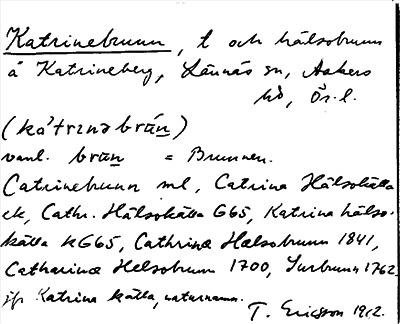 Katrinebrunn, l och hälsobrunn
å Katrineberg, Lännäs sn, Askers
hd, Ör. l.
(ká'trınəbrún)
vanl. brún = Brunnen.
Catrinebrunn ml, Catrina Hälsokälla
ek, Cathr. Hälsokälla G65, Katrina hälso-
källa kG65, Cathrinæ Hælsobrunn 1841,
Catharinæ Helsobrunn 1700, Surbrunn 1762
jfr Katrina källa, naturnamn.
T. Ericsson 1912.